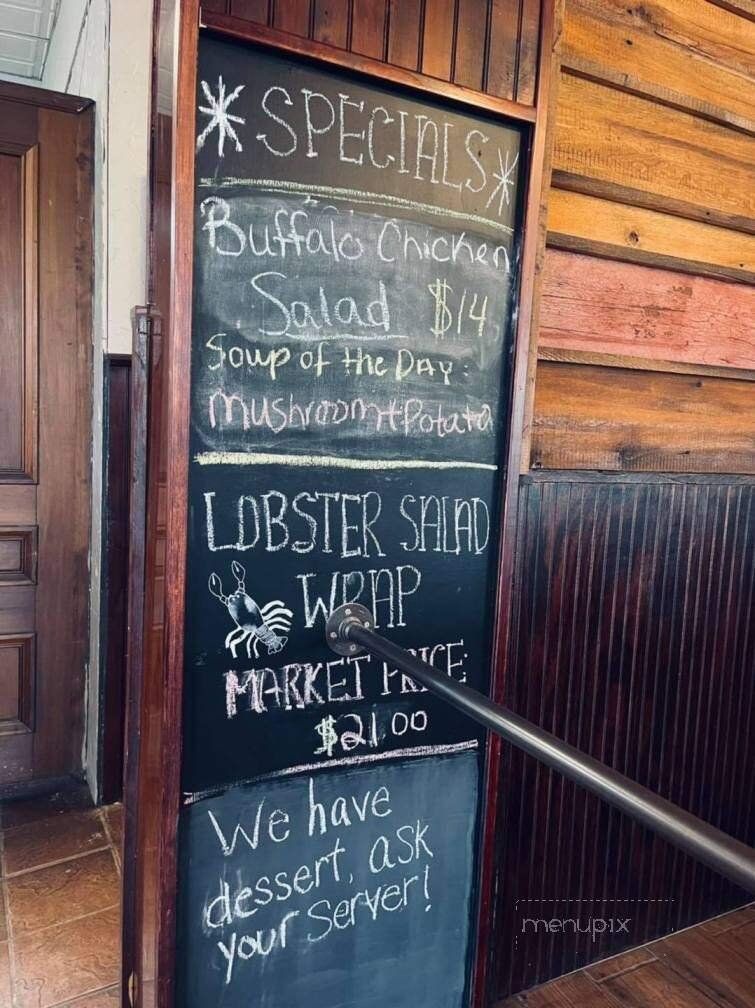 *SPECIALS*
Buffalo Chicken
Salad $14
Soup of the Day:
Mushroom+Potato
LOBSTER SALAD
WRAP
MARKET PRICE:
$21.00
We have
dessert, ask
your server!
menupix